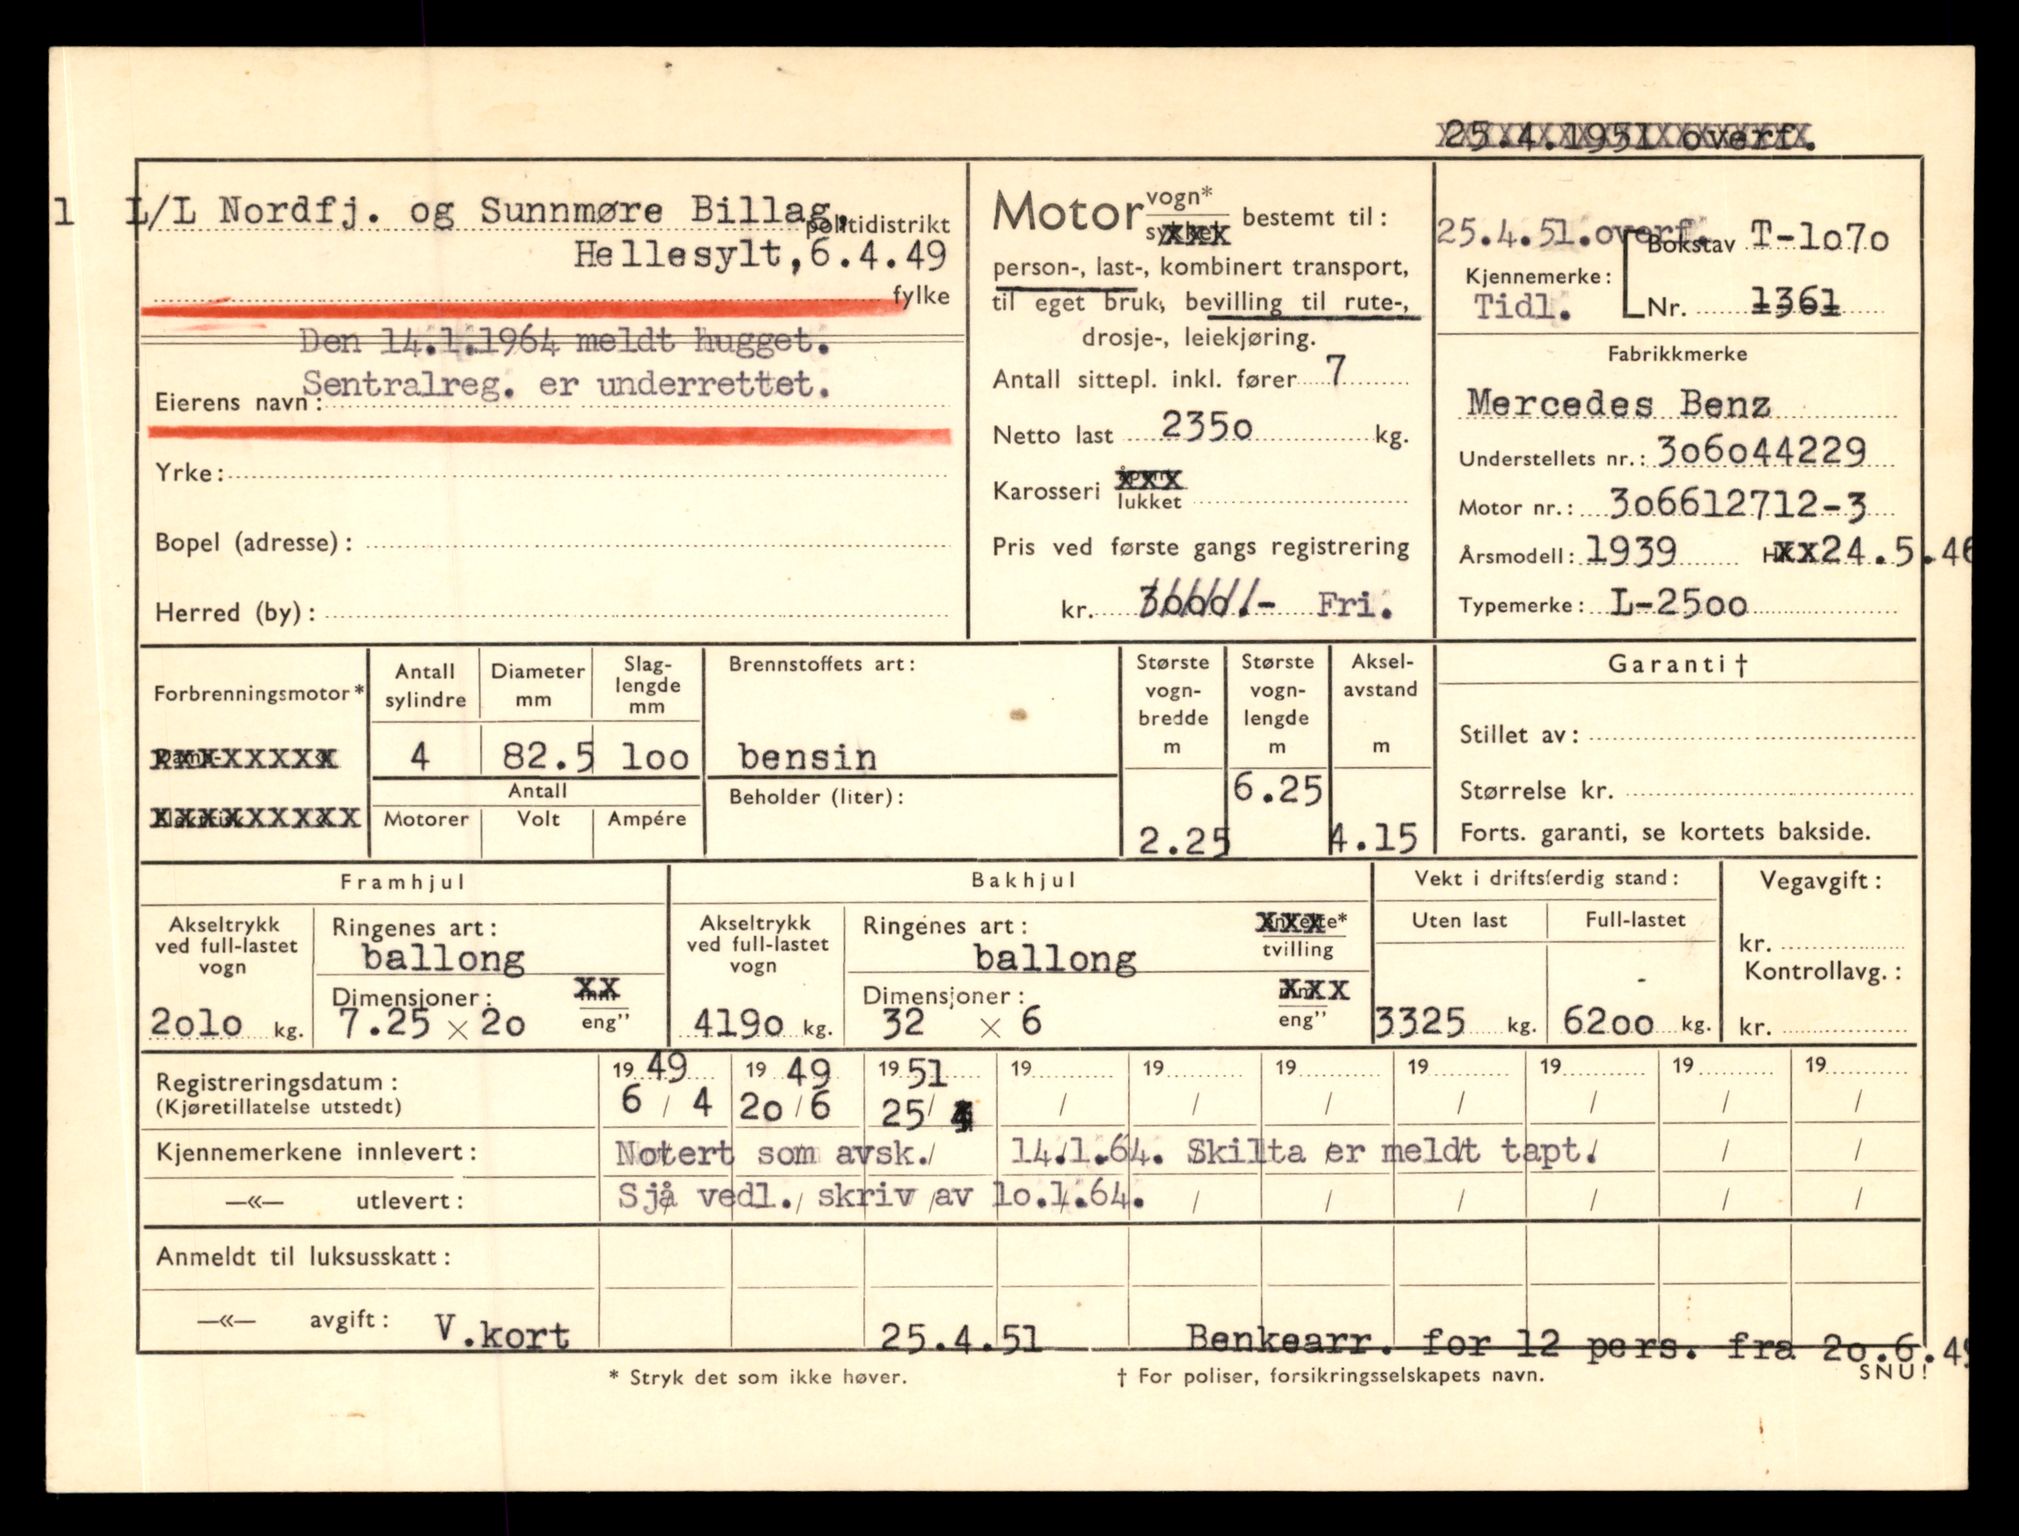 25.4.1951 overf.
1 L/L Nordfj. og Sunnmøre Billag,
politidistrikt
Hellesylt, 6.4.49
fylke
Den 14.1.1964 meldt hugget.
Sentralreg. er underrettet.
Eierens navn:
Yrke:
Bopel (adresse):
Herred (by):
Motor vogn*
bestemt til:
person-, last-, kombinert transport,
til eget bruk, bevilling til rute-,
drosje-, leiekjøring.
Antall sittepl. inkl. fører 7
Netto last 2350 kg.
Karosseri
lukket
Pris ved første gangs registrering
kr. 3000.- Fri.
25.4.51.overf.
Bokstav T-1070
Kjennemerke:
Tidl. Nr. 1361
Fabrikkmerke
Mercedes Benz
Understellets nr.: 306044229
Motor nr.: 306612712-3
Årsmodell: 1939 xx24.5.46
Typemerke: L-2500
Forbrenningsmotor*
Antall sylindre
Diameter mm
Slag-
lengde
mm
4 82.5 100
xxxxxxxx
xxxxxxxxx
Antall
Motorer Volt Ampére
Brennstoffets art:
bensin
Beholder (liter):
Største
vogn-
bredde
m
2.25
Største
vogn-
lengde
m
6.25
Aksel-
avstand
m
4.15
Garanti †
Stillet av:
Størrelse kr.
Forts. garanti, se kortets bakside.
Framhjul
Akseltrykk
ved full-lastet
vogn
2010 kg.
Ringenes art:
ballong
Dimensjoner: xx
7.25 × 20 eng"
Bakhjul
Akseltrykk
ved full-lastet
vogn
4190 kg.
Ringenes art:
tvilling
ballong
Dimensjoner: xxx
32 × 6 eng"
Vekt i driftsferdig stand:
Uten last Full-lastet
3325 kg. 6200 kg.
Vegavgift:
kr.
Kontrollavg.:
kr.
Registreringsdatum: 19 49 19 49 19 51 19 19 19 19 19 19 19
(Kjøretillatelse utstedt) 6 / 4 20 / 6 25 / 4 / / / / / / /
Kjennemerkene innlevert: Notert som avsk. 14.1.64. Skilta er meldt tapt.
—«— utlevert: Sjå vedl. skriv av 10.1.64.
Anmeldt til luksusskatt:
—«— avgift: V.kort 25.4.51 Benkearr. for 12 pers. fra 20.6.49
* Stryk det som ikke høver.
† For poliser, forsikringsselskapets navn.
SNU!